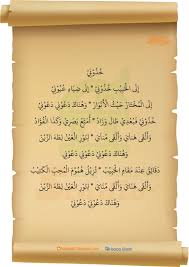 خُذُونِيْ
خُذُونِيْ إِلَى الْحَبِيْبْ خُذُونِيْ * إِلَى ضِيَاءِ عُيُوْنِيْ
إِلَى الْمُخْتَارْ حَيْثُ الْأَنْوَارْ * وَهُنَاكَ دَعُوْنِيْ دَعُوْنِيْ
خُذُوْنِيْ فَبِعَادِيْ طَالَ وَزَادْ * أُمَتِّعْ بَصَرِيْ وَكَذَا الْفُؤَادْ
وَأَلْقَى هَنَايَ وَأَلْقَى مُنَايَ * بِنُوْرِ الْعَيْنْ لِطٰهَ الزَّيْنْ
وَهُنَاكَ دَعُوْنِيْ دَعُوْنِيْ
دَقَائِقْ عِنْدَ مَقَامِ الْحَبِيْبْ * تُزِيْلُ هُمُوْمَ الْمُحِبِّ الْكَئِيْبْ
وَأَلْقَى هَنَايَ وَأَلْقَى مُنَايَ * بِنُوْرِ الْعَيْنْ لِطٰهَ الزَّيْنْ
وَهُنَاكَ دَعُوْنِيْ دَعُوْنِيْ